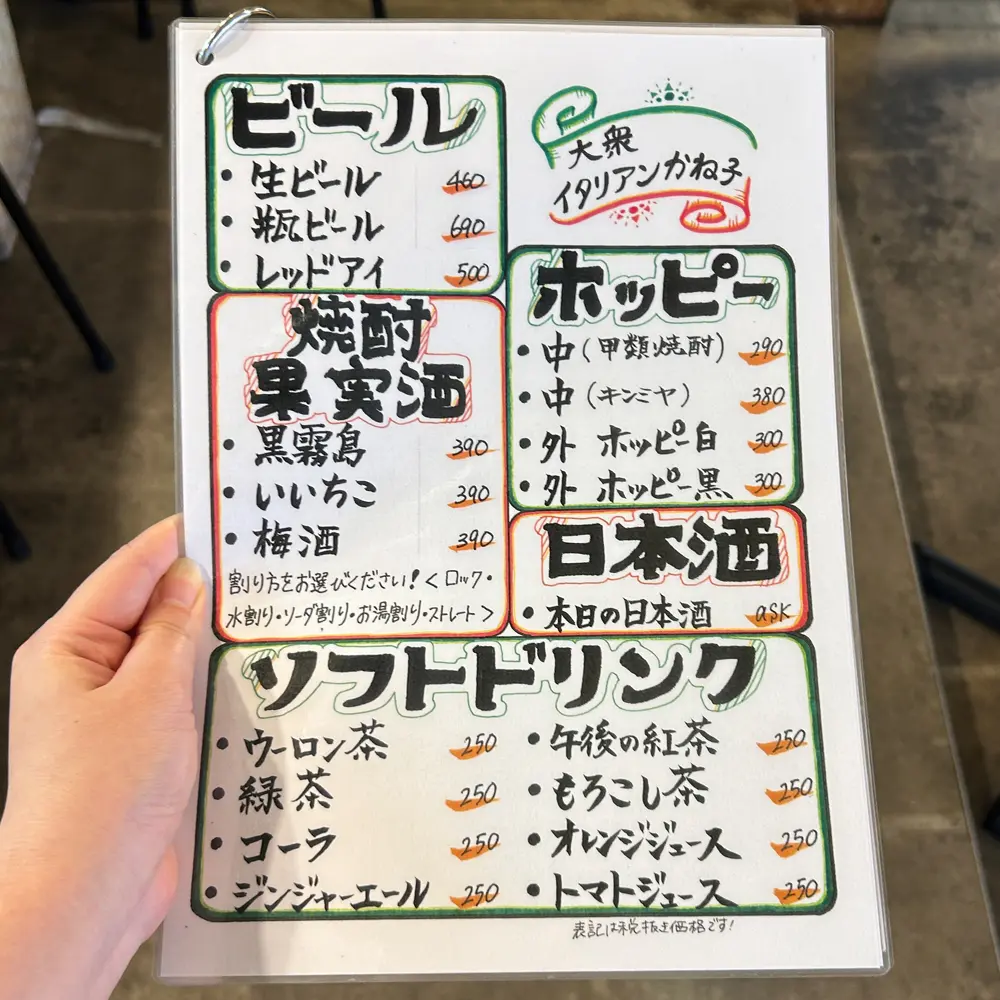 大衆
イタリアンかね子
ビール
・生ビール 460
・瓶ビール 690
・レッドアイ 500
焼酎
果実酒
・黒霧島 390
・いいちこ 390
・梅酒 390
割り方をお選びください!<ロック・
水割り・ソーダ割り・お湯割り・ストレート>
ホッピー
・中(甲類焼酎) 290
・中(キンミヤ) 380
・外 ホッピー白 300
・外 ホッピー黒 300
日本酒
・本日の日本酒 ask
ソフトドリンク
・ウーロン茶 250
・緑茶 250
・コーラ 250
・ジンジャーエール 250
・午後の紅茶 250
・もろこし茶 250
・オレンジジュース 250
・トマトジュース 250
表記は税抜き価格です!